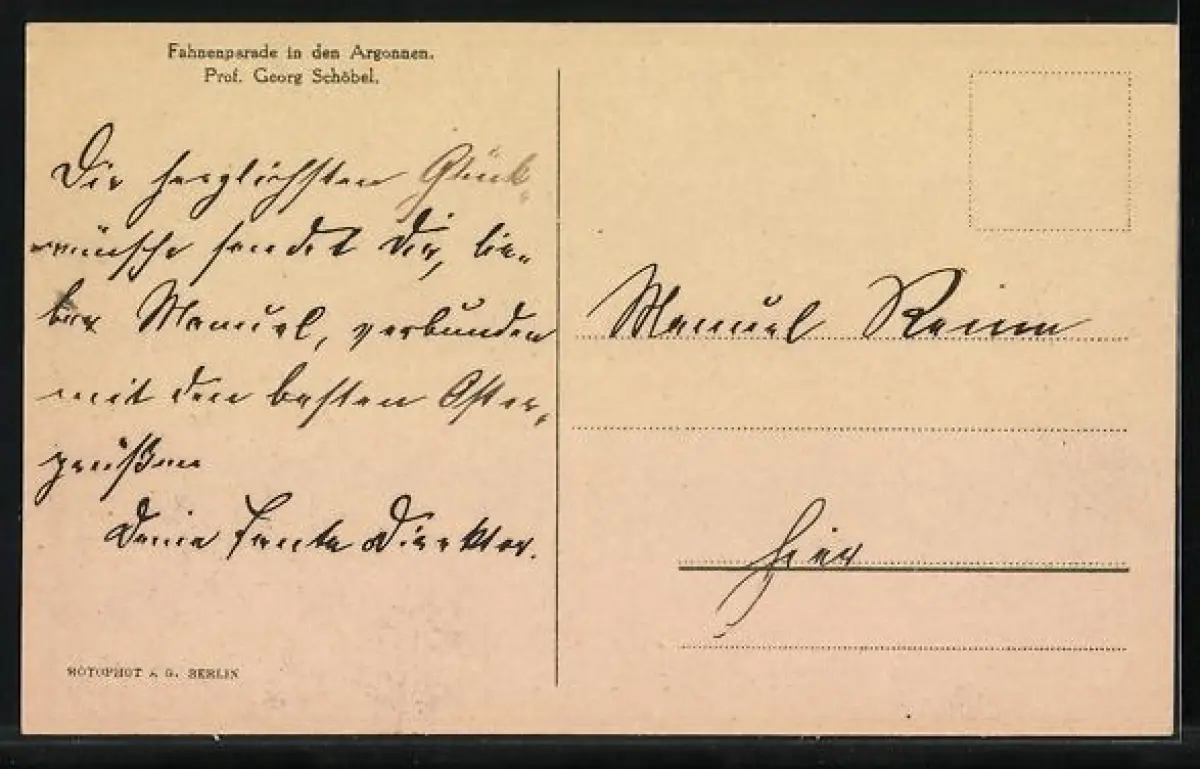 Fahnenparade in den Argonnen.
Prof. Georg Schöbel.
Die herzlichsten Glück-
wünsche sendet Dir, lie-
ber Manuel, verbunden
mit den besten Oster-
grüßen
Deine Tante Direktor.
Manuel
Hier
ROTOPHOT A. G. BERLIN